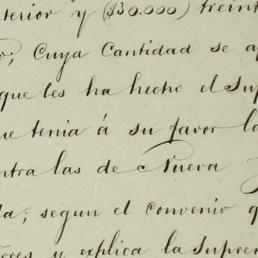 terior y ($30.000) treint
Cuya Cantidad se ap
que les ha hecho el Sup
ue tenia á su favor la
ntra las de Nueva
da; segun el convenio q
ores y explica la Suprem